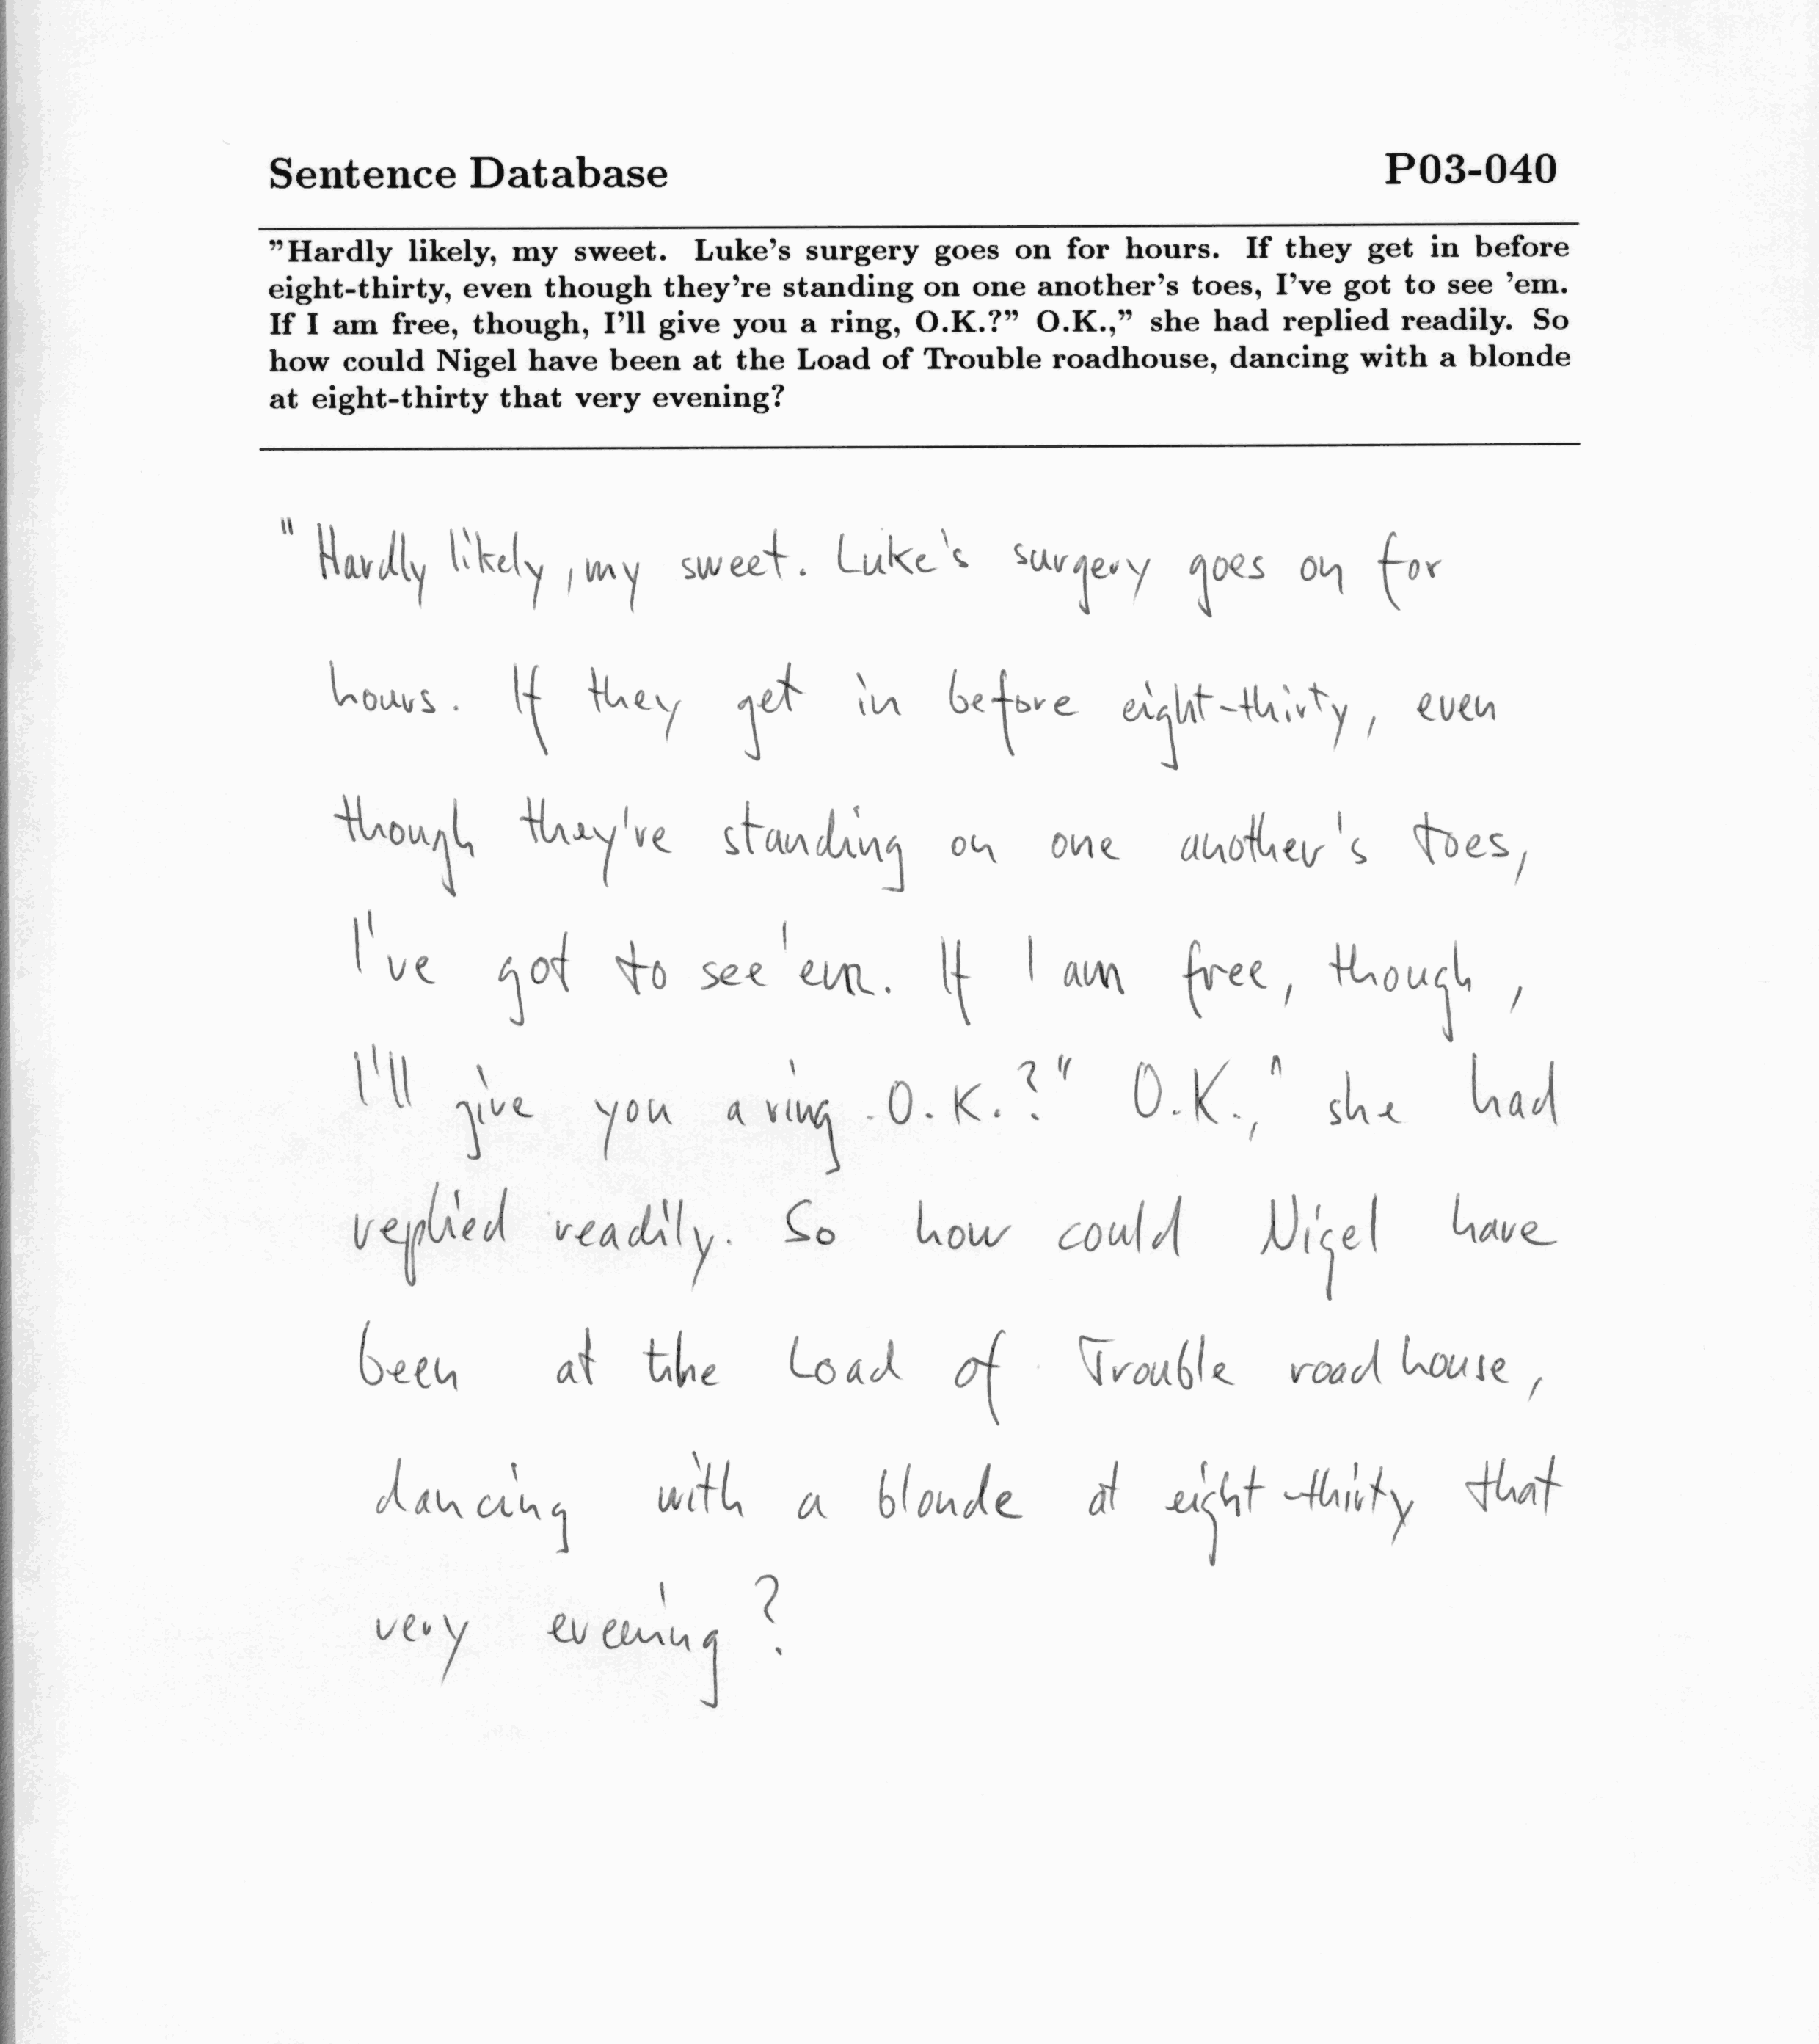 Sentence Database P03-040
”Hardly likely, my sweet. Luke’s surgery goes on for hours. If they get in before
eight-thirty, even though they’re standing on one another’s toes, I’ve got to see ’em.
If I am free, though, I’ll give you a ring, O.K.?” O.K.,” she had replied readily. So
how could Nigel have been at the Load of Trouble roadhouse, dancing with a blonde
at eight-thirty that very evening?
"Hardly likely, my sweet. Luke's surgery goes on for
hours. If they get in before eight-thirty, even
though they're standing on one another's toes,
I've got to see 'em. If I am free, though,
I'll give you a ring. O.K.?" O.K.," she had
replied readily. So how could Nigel have
been at the Load of Trouble roadhouse,
dancing with a blonde at eight-thirty that
very evening?